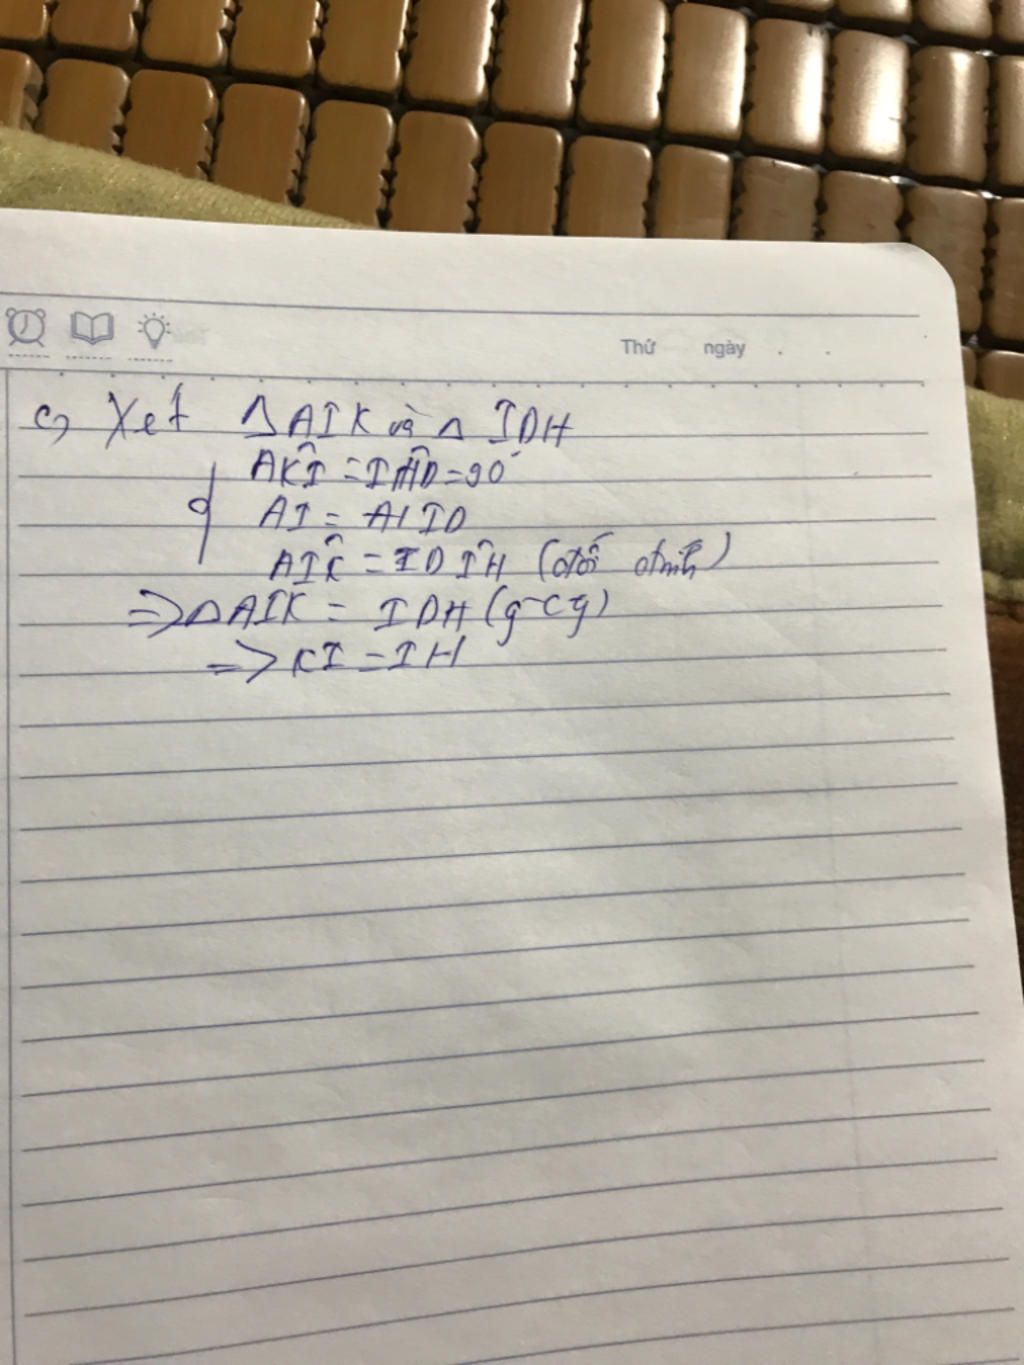 Thứ ngày . .
c, Xét ΔAIK và Δ IDH
AK̂I = IĤD = 90°
AI = ID
AIK̂ = DIĤ (đối đỉnh)
=> ΔAIK = IDH (g-c-g)
=> KI = IH